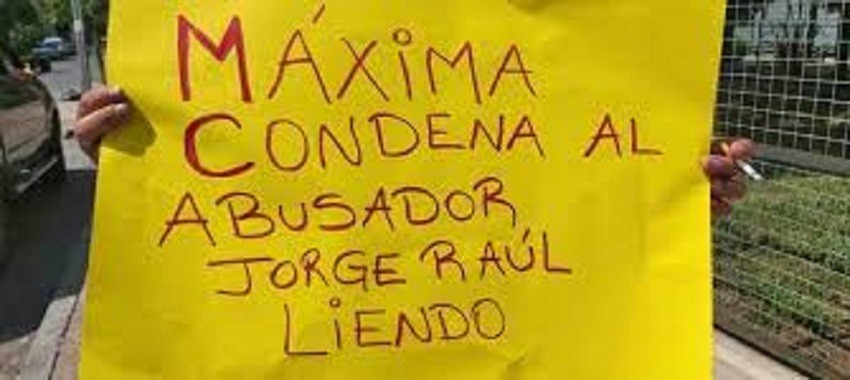 MÁXiMA
CONDENA AL
ABUSADOR
JORGE RAÚL
LiENDO